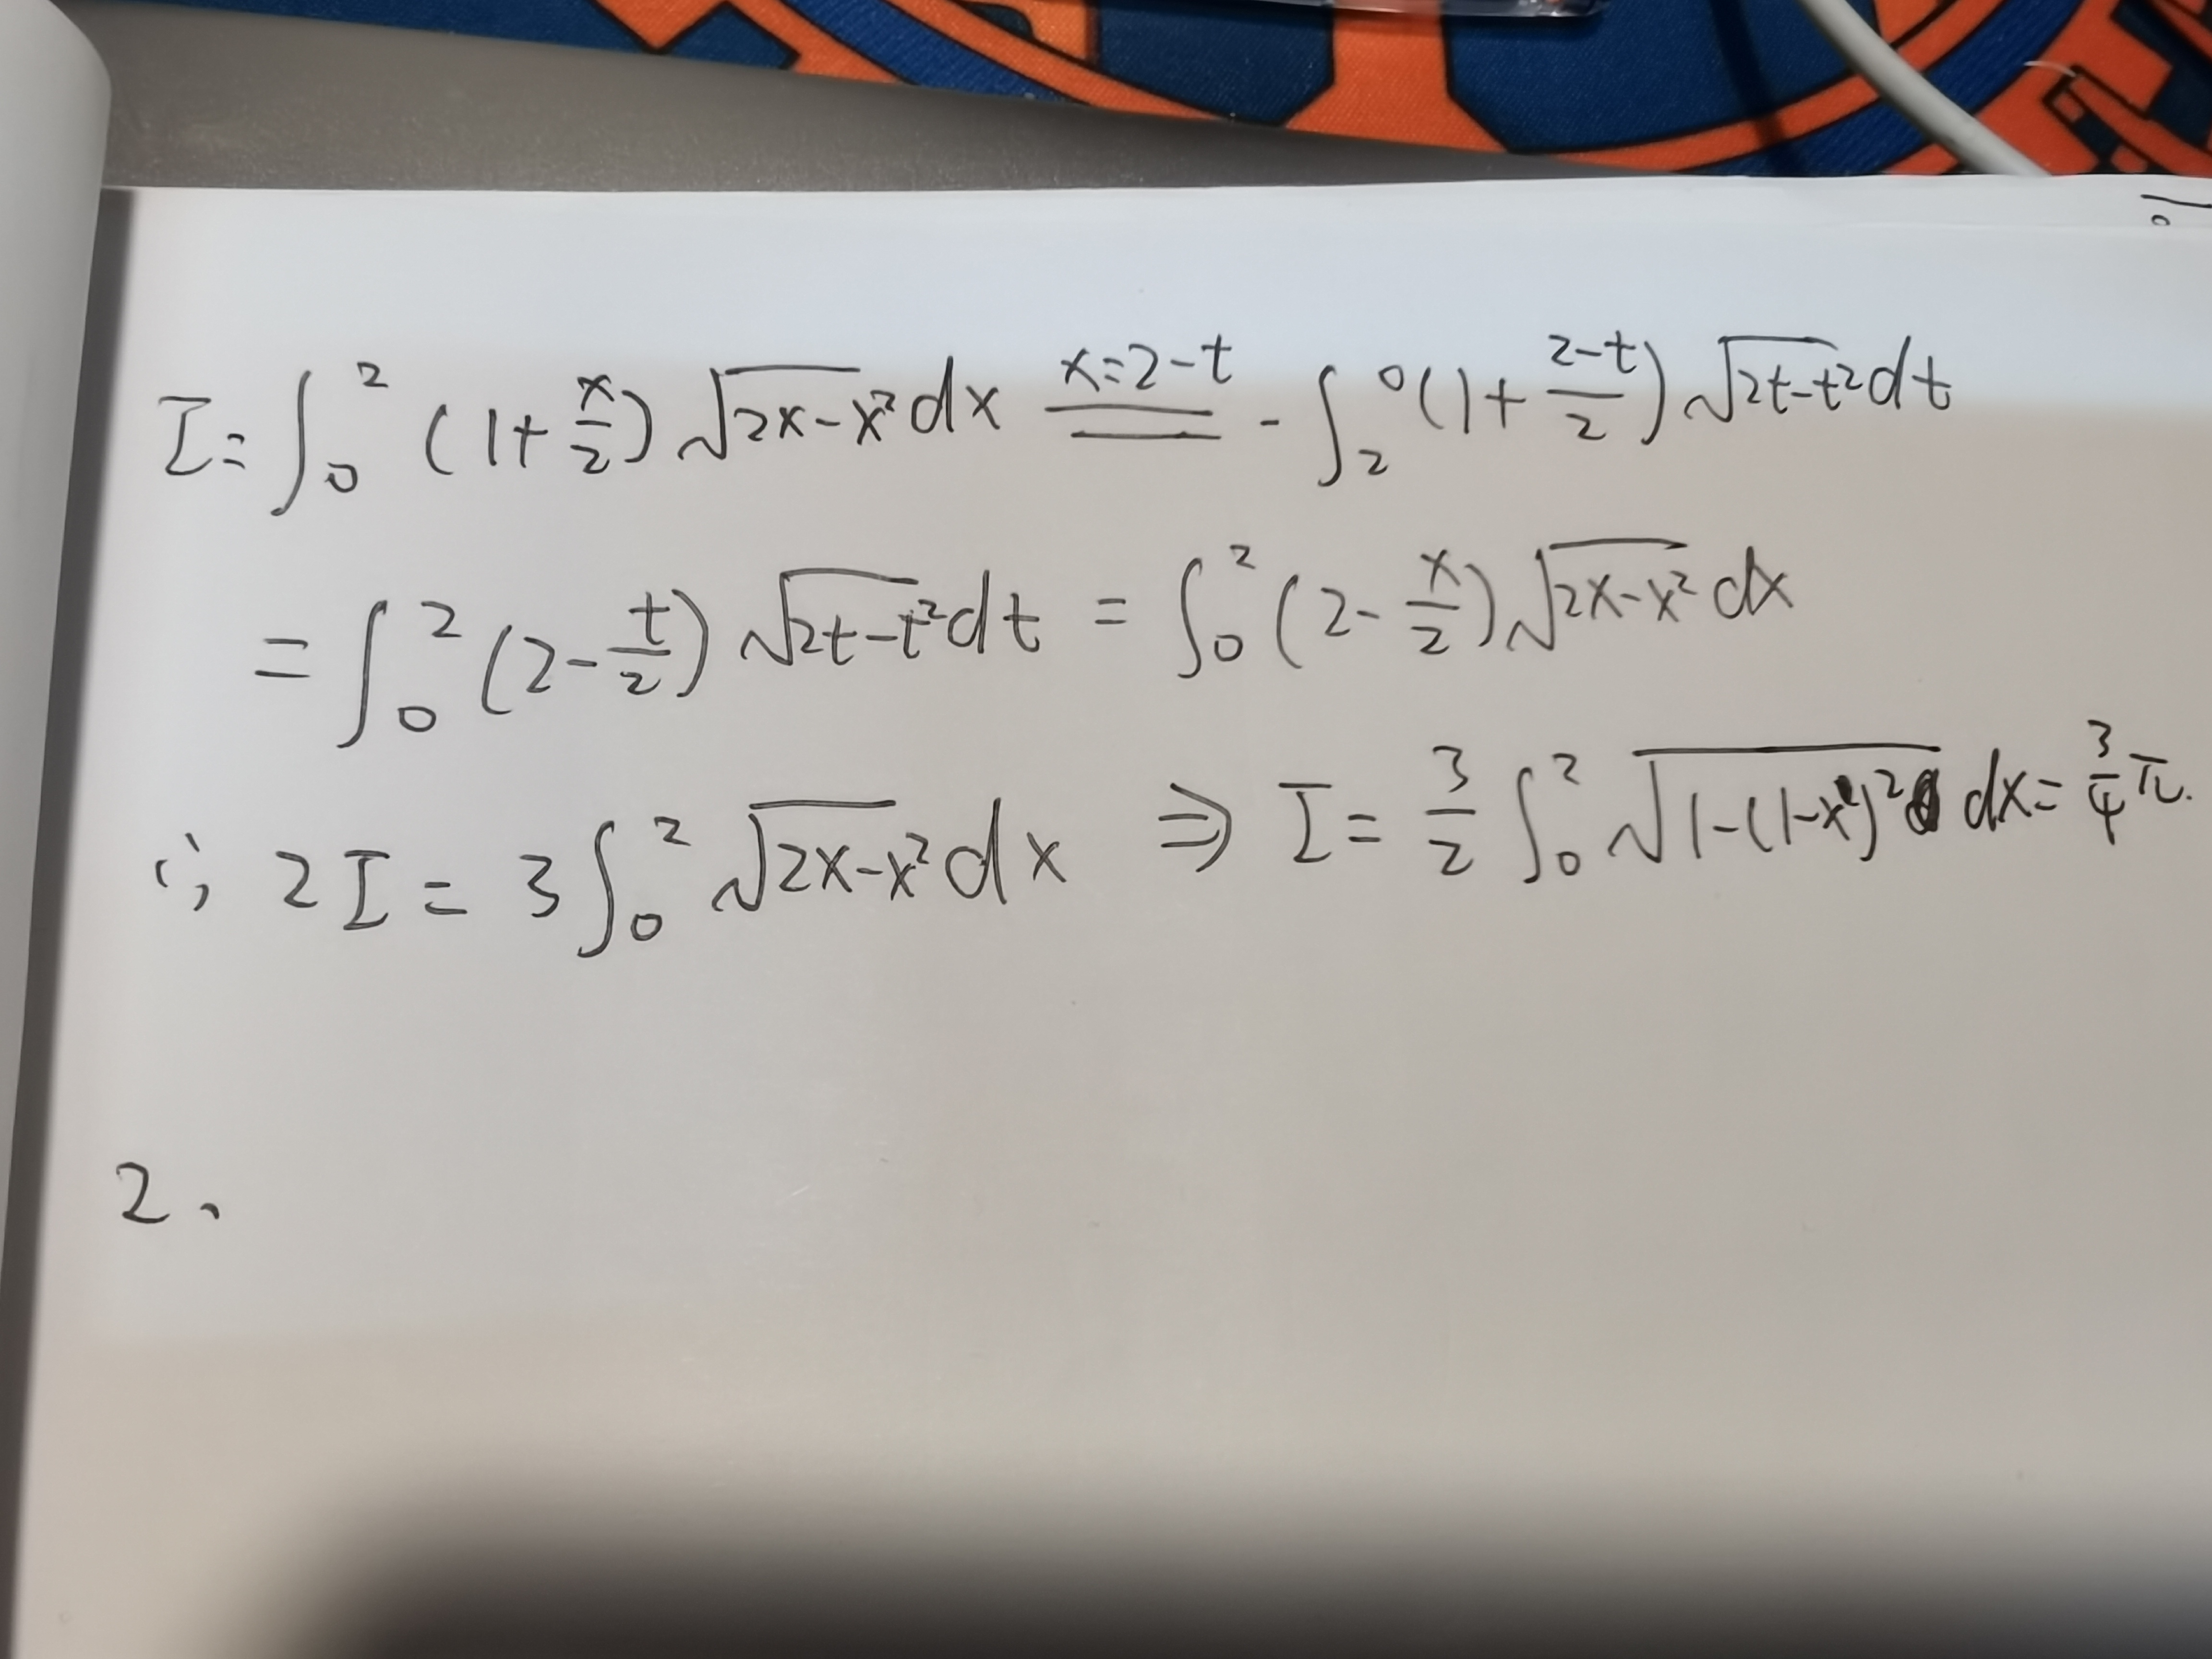 I = ∫₀² (1+x/2) √(2x-x²) dx x=2-t = -∫₂⁰ (1+(2-t)/2) √(2t-t²) dt
= ∫₀² (2-t/2) √(2t-t²) dt = ∫₀² (2-x/2) √(2x-x²) dx
∴ 2I = 3∫₀² √(2x-x²) dx ⇒ I = 3/2 ∫₀² √(1-(1-x)²) dx = 3/4 π.
2、